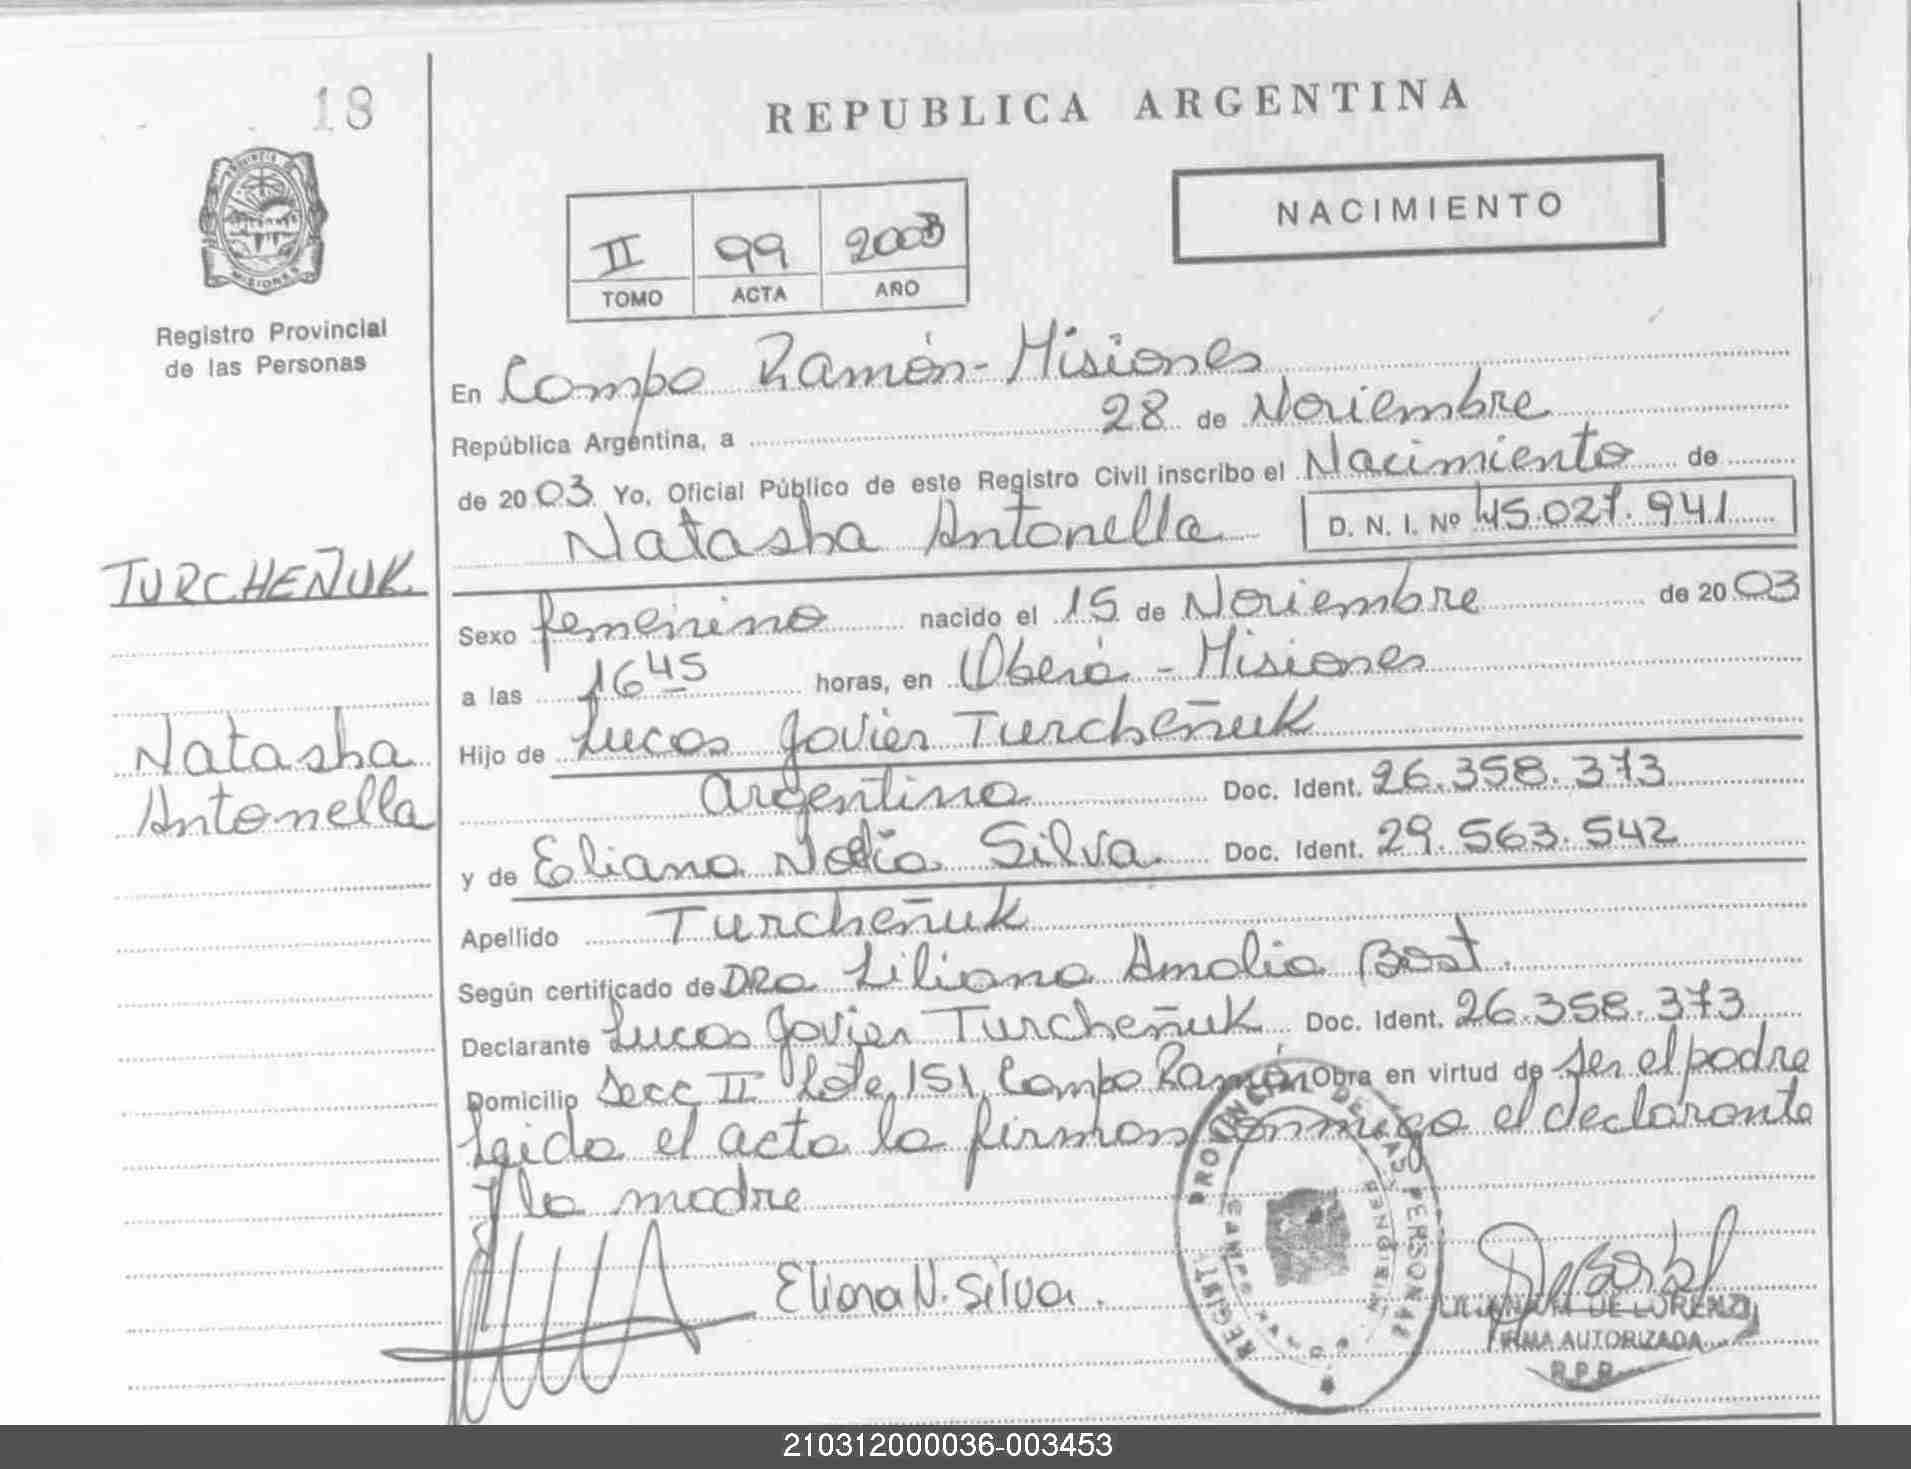 18
REPUBLICA ARGENTINA
PROVINCIA DE MISIONES
Registro Provincial
de las Personas
II 99 2003
TOMO ACTA AÑO
NACIMIENTO
En Campo Ramón - Misiones
República Argentina, a 28 de Noviembre
de 2003 Yo, Oficial Público de este Registro Civil inscribo el Nacimiento de
Natasha Antonella D. N. I. Nº 45.027.941
TURCHEÑUK
Natasha
Antonella
Sexo femenino nacido el 15 de Noviembre de 2003
a las 16 45 horas, en Oberá - Misiones
Hijo de Lucas Javier Turcheñuk
Argentino Doc. Ident. 26.358.373
y de Eliana Silva Doc. Ident. 29.563.542
Apellido Turcheñuk
Según certificado de DRa Liliana Amalia Bast.
Declarante Lucas Javier Turcheñuk Doc. Ident. 26.358.373
Domicilio Secc II Lote 151 Campo Ramón Obra en virtud de ser el padre
Leida el acta la firman conmigo el declarante
y la madre
Eliana N. Silva.
REGIST PROVINCIAL DE LAS PERSONAS
CAMPO RAMON MISIONES
DE LORENZO
FIRMA AUTORIZADA
R.P.P.
210312000036-003453